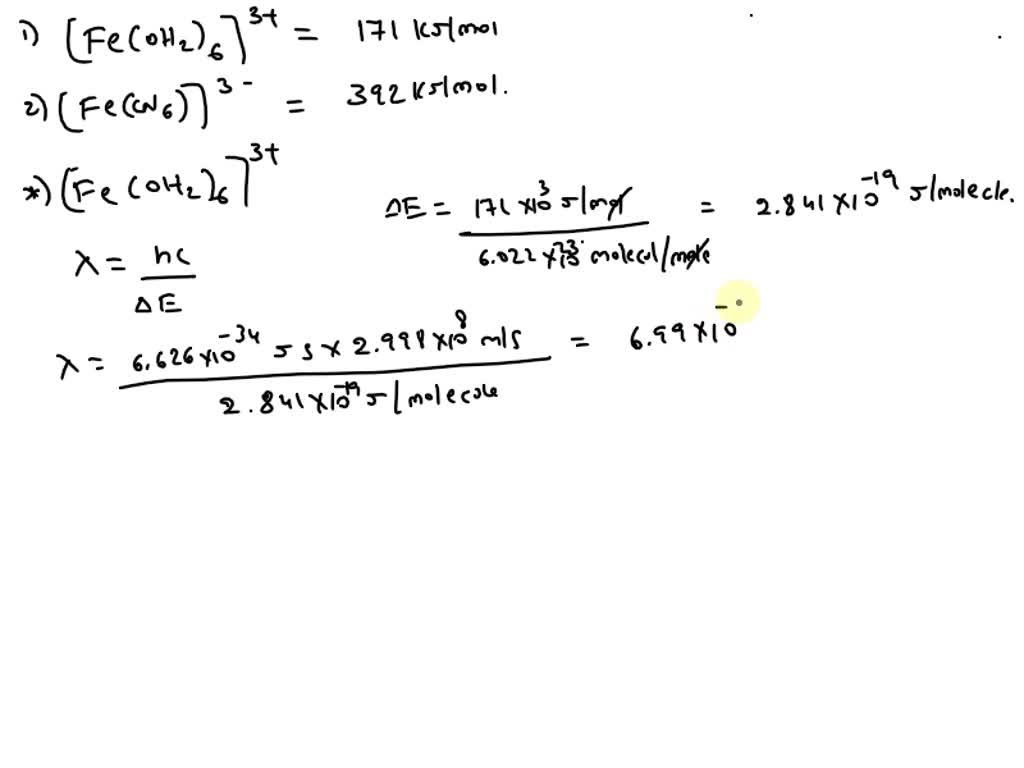 1) [Fe(OH₂)₆]³⁺ = 171 kJ/mol
2) [Fe(CN₆)]³⁻ = 392 kJ/mol.
*) [Fe(OH₂)₆]³⁺
ΔE = 171 × 10³ J/mol / 6.022 × 10²³ molecul/mole = 2.841 × 10⁻¹⁹ J/molecle.
λ = hc / ΔE
λ = 6.626 × 10⁻³⁴ J s × 2.998 × 10⁸ m/s / 2.841 × 10⁻¹⁹ J/molecole = 6.99 × 10⁻